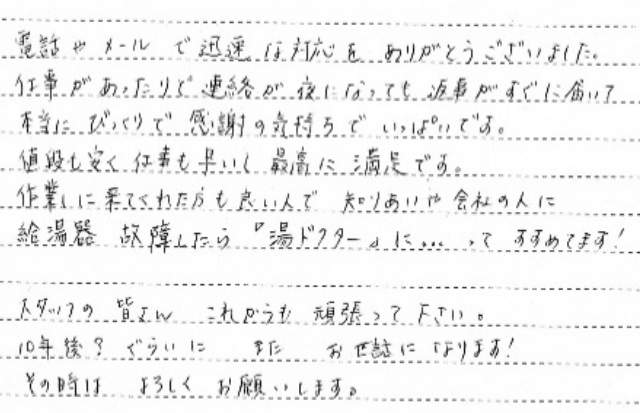 電話やメールで迅速な対応をありがとうございました。
仕事があったりで連絡が夜になっても返事がすぐに届いて
本当にびっくりで感謝の気持ちでいっぱいです。
値段も安く仕事も早いし最高に満足です。
作業しに来てくれた方も良い人で 知りあいや会社の人に
給湯器 故障したら『湯ドクター』に… って すすめてます!
スタッフの皆さん これからも 頑張って下さい。
10年後?ぐらいに また お世話になります!
その時は よろしくお願いします。